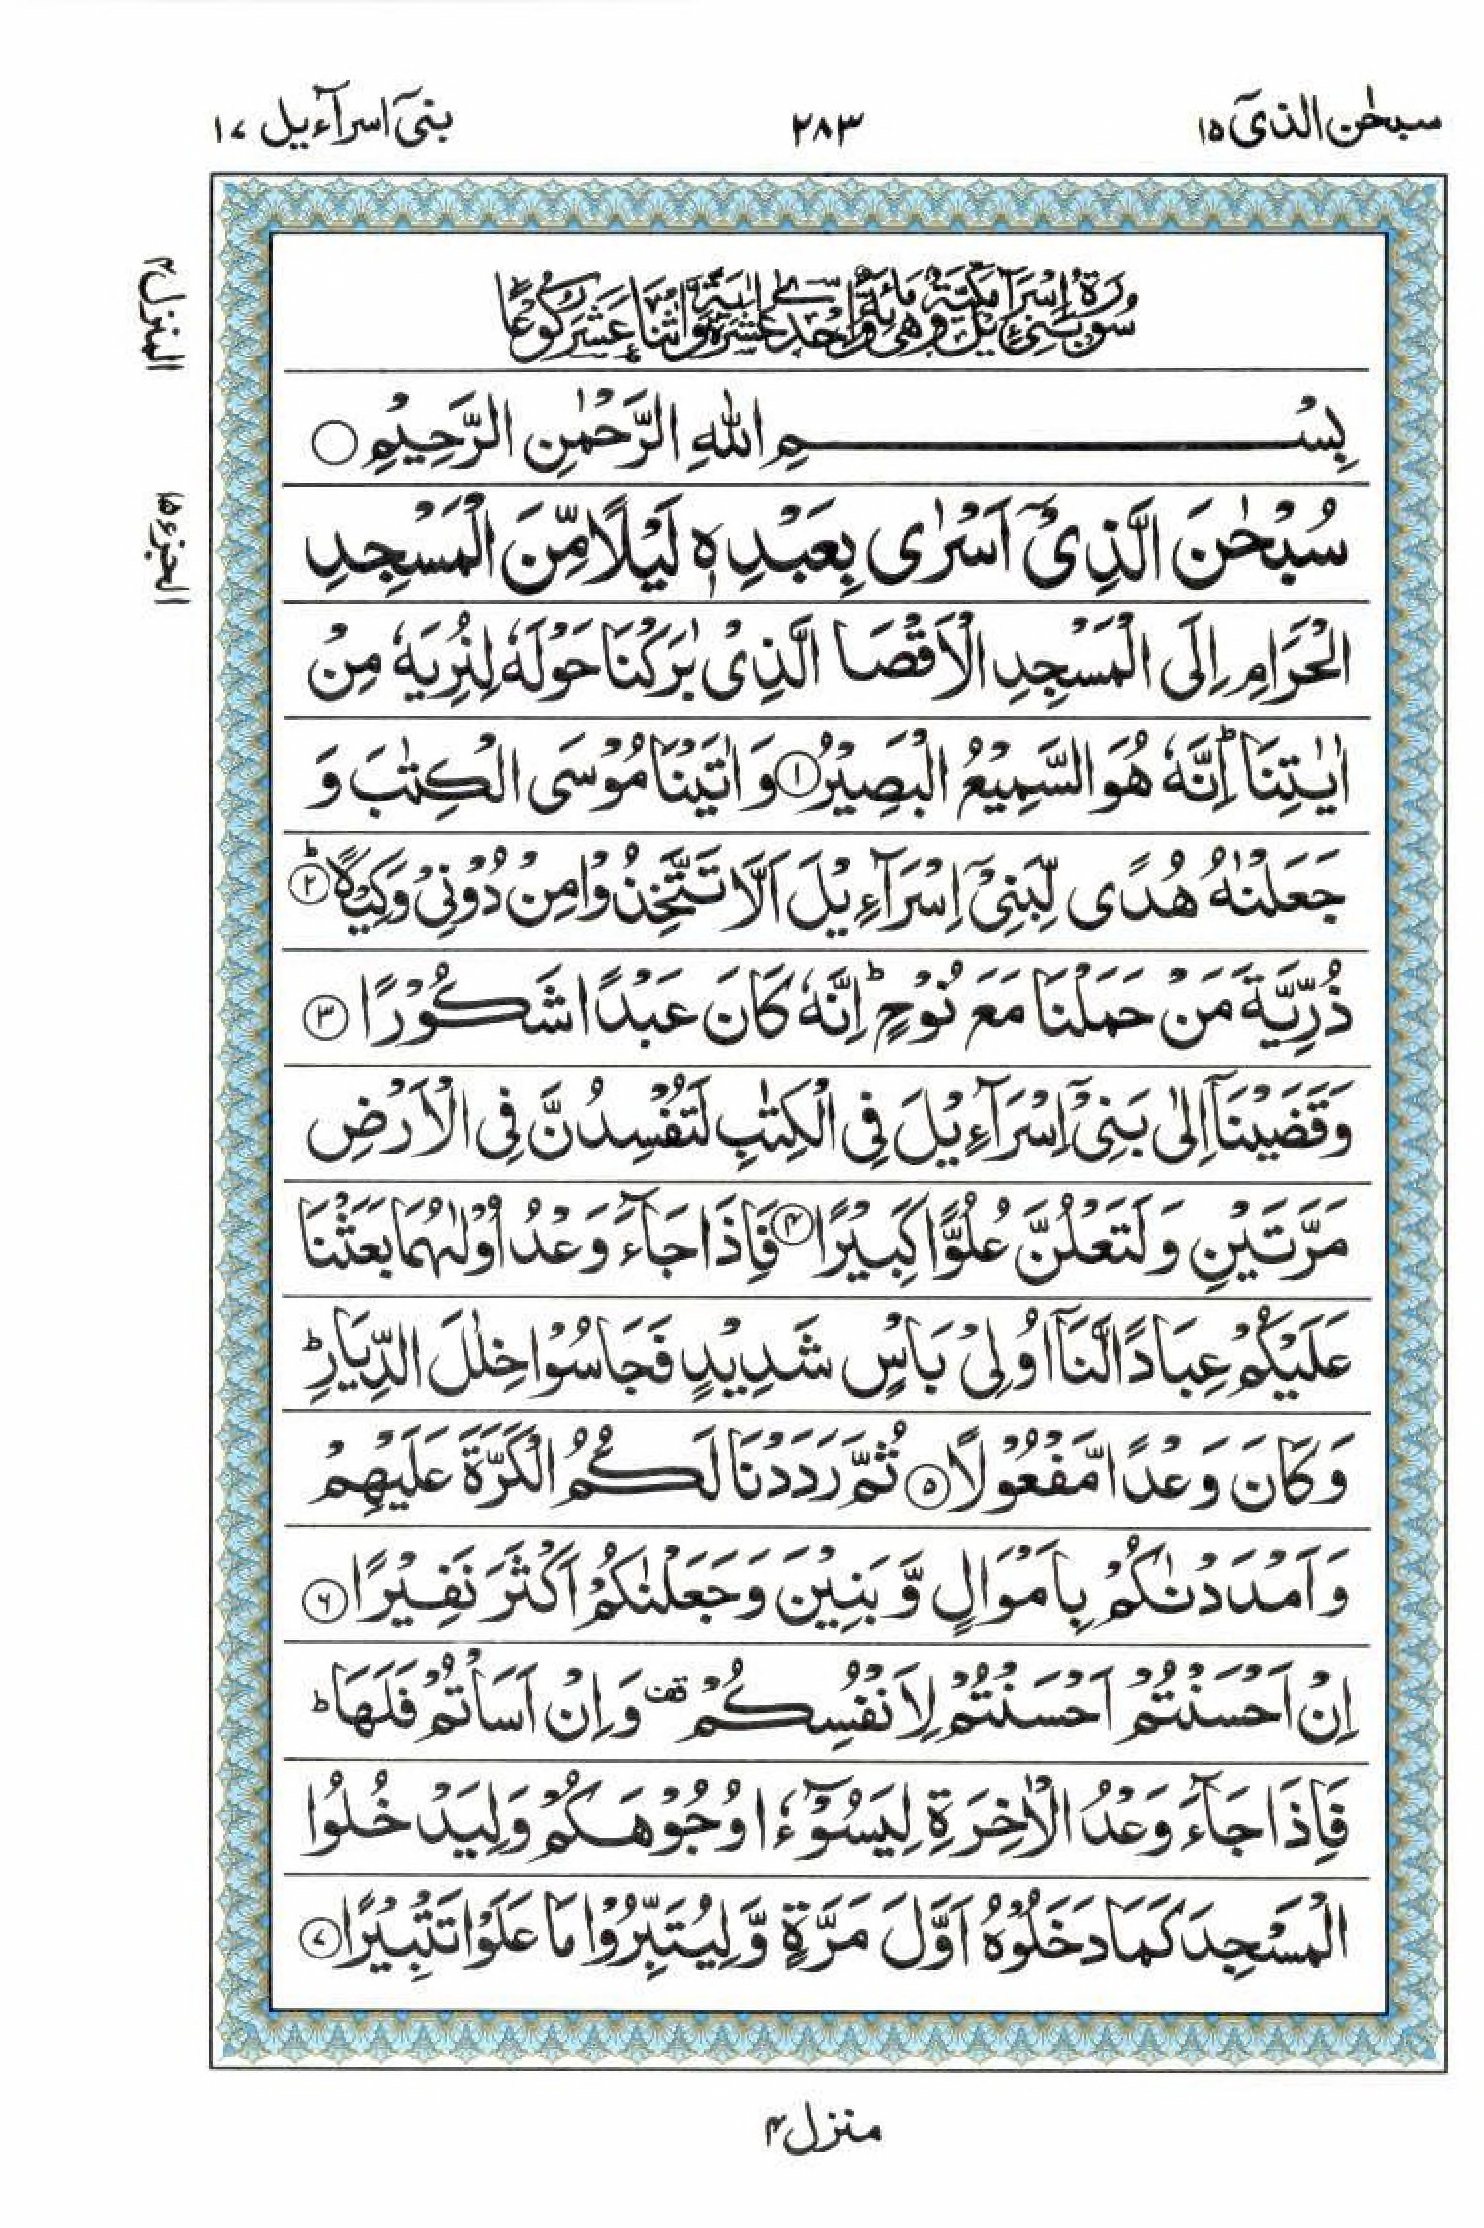 سبحٰن الذیٓ ۱۵
۲۸۳
بنیٓ اسرآءیل ۱۷
المنزل ۴
الجزء ۱۵
سُوۡرَةُ بَنِیۡٓ اِسۡرَآءِیۡلَ مَکِّیَّةٌ وَّهِیَ مِائَةٌ وَّاِحۡدٰی عَشۡرَةَ اٰیَةً وَّاثۡنَا عَشَرَ رُکُوۡعًا
بِسۡمِ اللهِ الرَّحۡمٰنِ الرَّحِيۡمِ ۝
سُبۡحٰنَ الَّذِىۡۤ اَسۡرٰى بِعَبۡدِهٖ لَيۡلًا مِّنَ الۡمَسۡجِدِ
الۡحَرَامِ اِلَى الۡمَسۡجِدِ الۡاَقۡصَا الَّذِىۡ بٰرَكۡنَا حَوۡلَهٗ لِنُرِيَهٗ مِنۡ
اٰيٰتِنَاؕ اِنَّهٗ هُوَ السَّمِيۡعُ الۡبَصِيۡرُ ۝۱ وَ اٰتَيۡنَا مُوۡسَى الۡكِتٰبَ وَ
جَعَلۡنٰهُ هُدًى لِّبَنِىۡۤ اِسۡرَآءِيۡلَ اَلَّا تَتَّخِذُوۡا مِنۡ دُوۡنِىۡ وَكِيۡلًاؕ ۝۲
ذُرِّيَّةَ مَنۡ حَمَلۡنَا مَعَ نُوۡحٍؕ اِنَّهٗ كَانَ عَبۡدًا شَكُوۡرًا ۝۳
وَقَضَيۡنَاۤ اِلٰى بَنِىۡۤ اِسۡرَآءِيۡلَ فِى الۡكِتٰبِ لَتُفۡسِدُنَّ فِى الۡاَرۡضِ
مَرَّتَيۡنِ وَلَتَعۡلُنَّ عُلُوًّا كَبِيۡرًا ۝۴ فَاِذَا جَآءَ وَعۡدُ اُوۡلٰٮهُمَا بَعَثۡنَا
عَلَيۡكُمۡ عِبَادًا لَّنَاۤ اُولِىۡ بَاۡسٍ شَدِيۡدٍ فَجَاسُوۡا خِلٰلَ الدِّيَارِؕ
وَكَانَ وَعۡدًا مَّفۡعُوۡلًا ۝۵ ثُمَّ رَدَدۡنَا لَـكُمُ الۡكَرَّةَ عَلَيۡهِمۡ
وَاَمۡدَدۡنٰكُمۡ بِاَمۡوَالٍ وَّبَنِيۡنَ وَجَعَلۡنٰكُمۡ اَكۡثَرَ نَفِيۡرًا ۝۶
اِنۡ اَحۡسَنۡتُمۡ اَحۡسَنۡتُمۡ لِاَنۡفُسِكُمۡ قف وَاِنۡ اَسَاۡتُمۡ فَلَهَاؕ
فَاِذَا جَآءَ وَعۡدُ الۡاٰخِرَةِ لِيَسُوۡٓءٗا وُجُوۡهَكُمۡ وَلِيَدۡخُلُوا
الۡمَسۡجِدَ كَمَا دَخَلُوۡهُ اَوَّلَ مَرَّةٍ وَّلِيُتَبِّرُوۡا مَا عَلَوۡا تَتۡبِيۡرًا ۝۷
منزل ۴